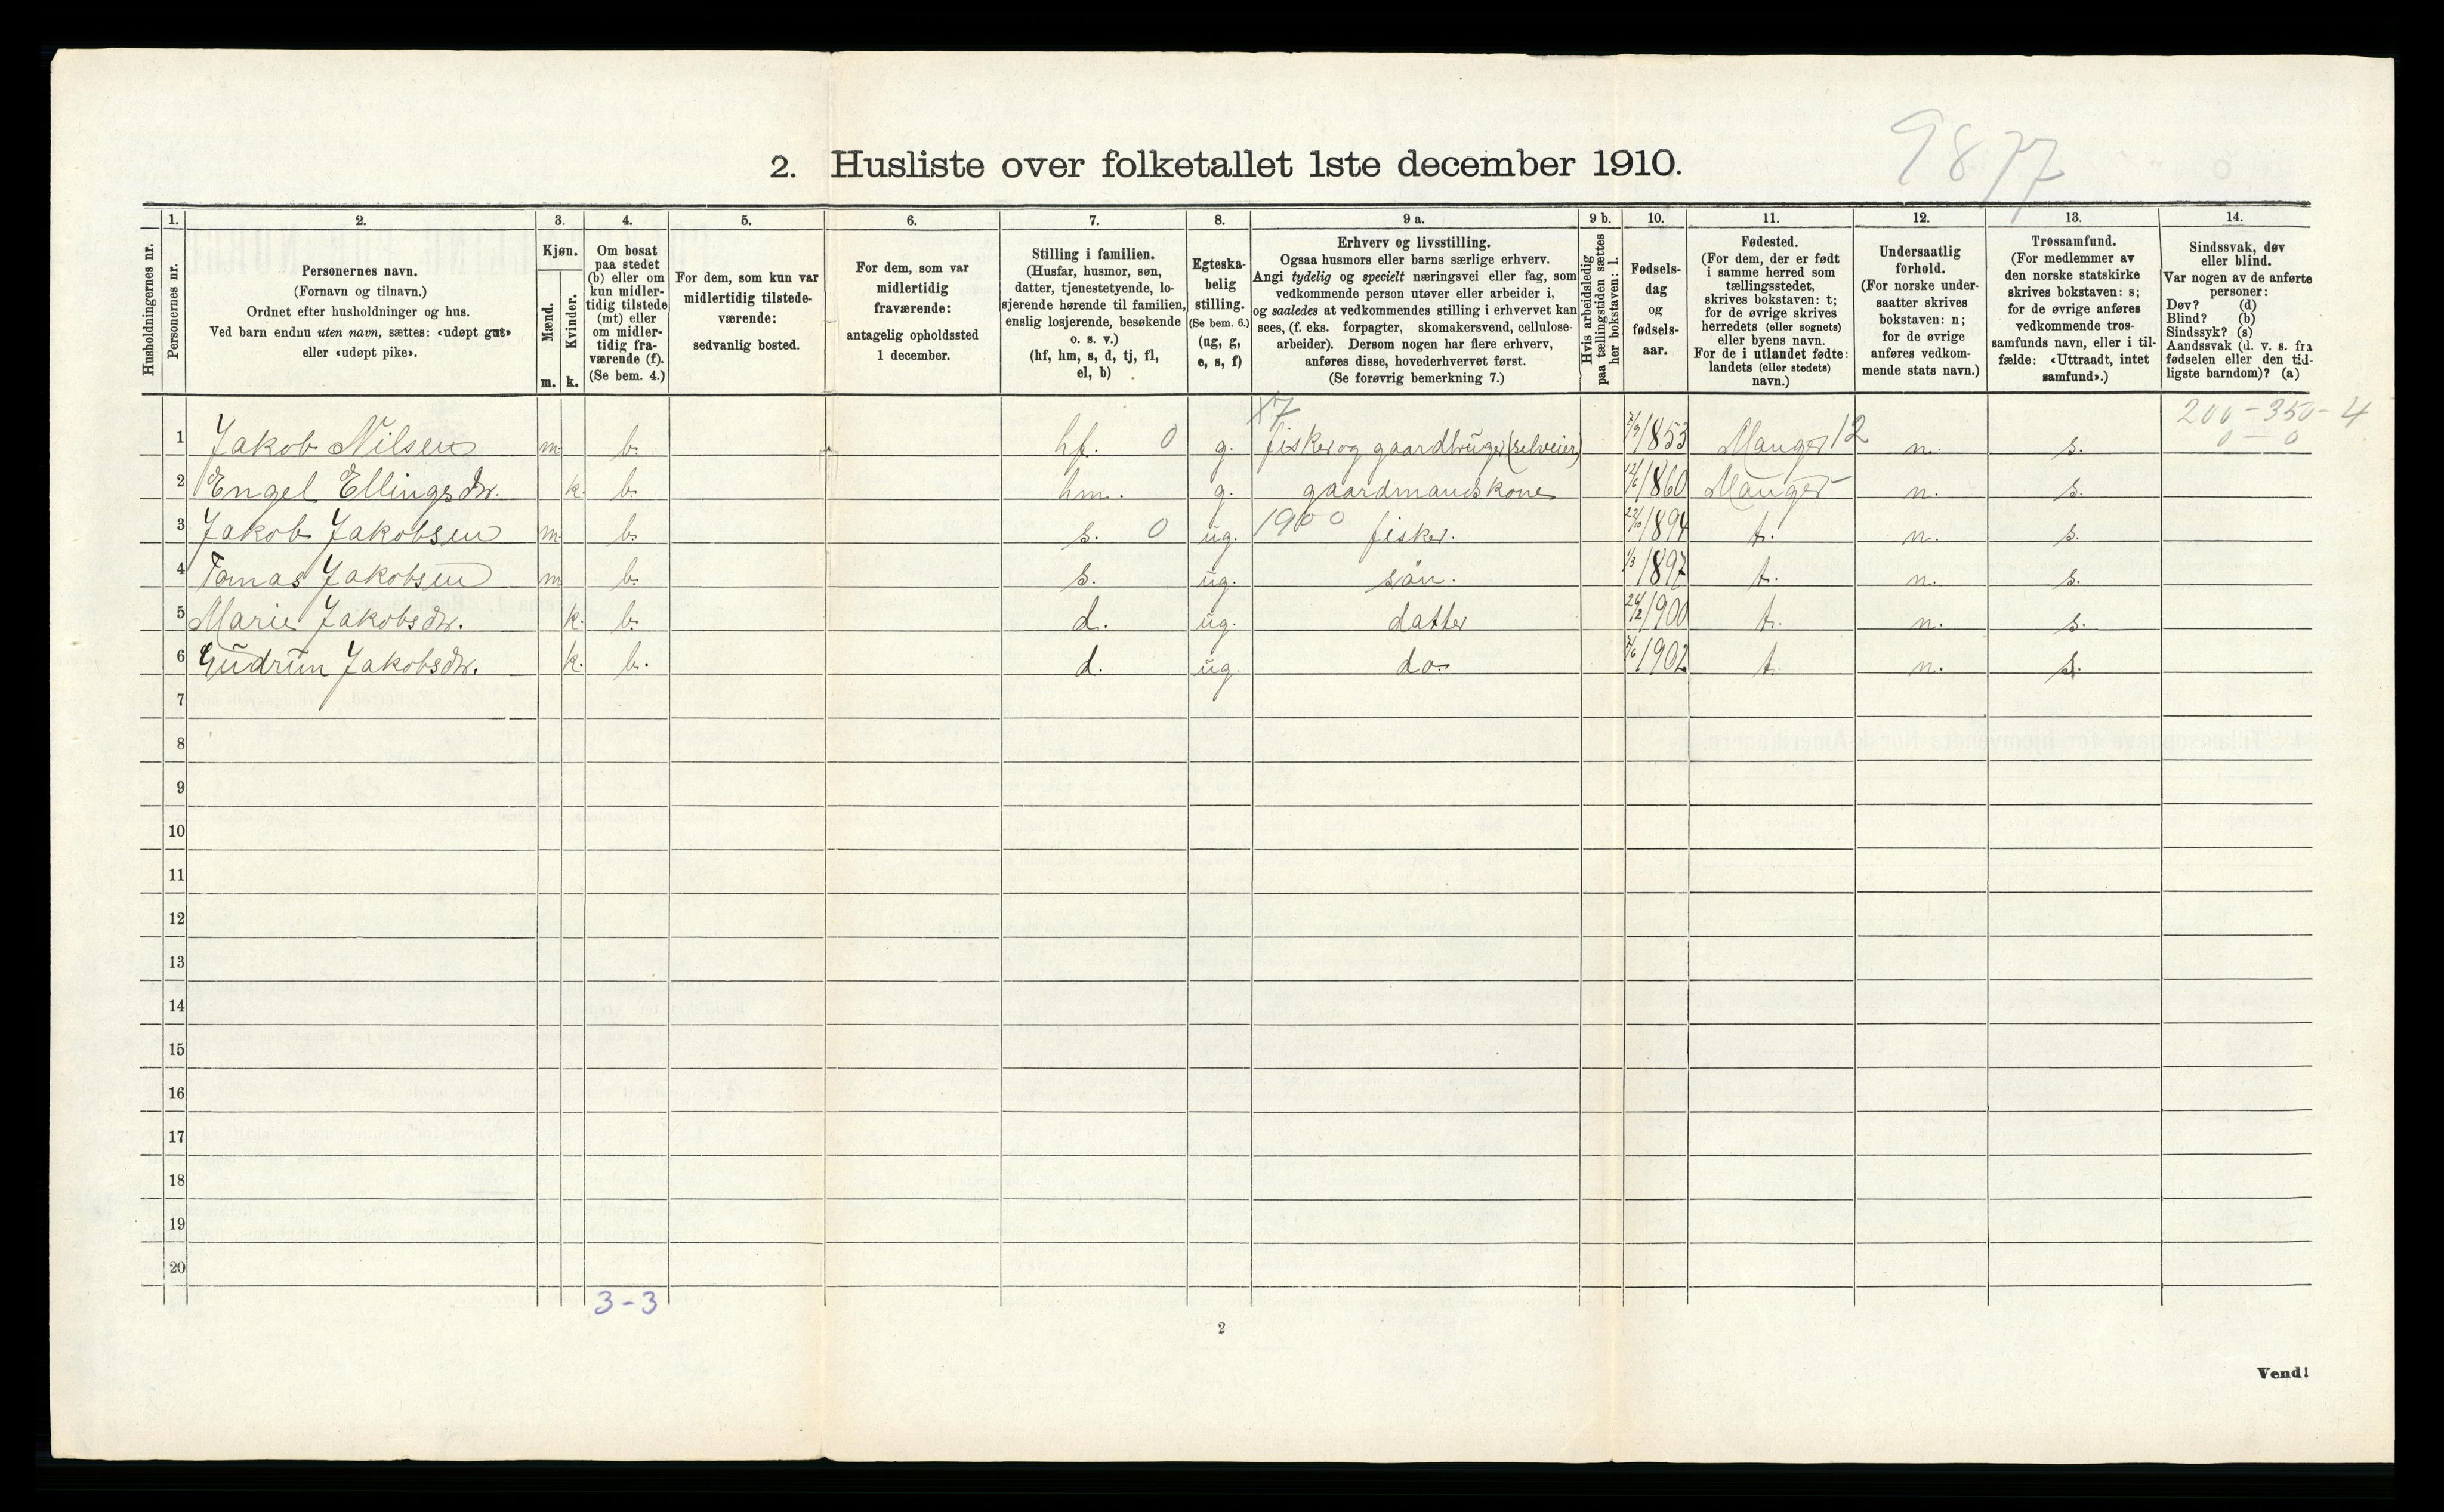 9877
2. Husliste over folketallet 1ste december 1910.
Husholdningernes nr.
1. Personernes nr.
2. Personernes navn.
(Fornavn og tilnavn.)
Ordnet efter husholdninger og hus.
Ved barn endnu uten navn, sættes: «udøpt gut»
eller «udøpt pike».
3. Kjøn.
Mænd. m.
Kvinder. k.
4. Om bosat
paa stedet
(b) eller om
kun midler-
tidig tilstede
(mt) eller
om midler-
tidig fra-
værende (f).
(Se bem. 4.)
5. For dem, som kun var
midlertidig tilstede-
værende:
sedvanlig bosted.
6. For dem, som var
midlertidig
fraværende:
antagelig opholdssted
1 december.
7. Stilling i familien.
(Husfar, husmor, søn,
datter, tjenestetyende, lo-
sjerende hørende til familien,
enslig losjerende, besøkende
o. s. v.)
(hf, hm, s, d, tj, fl,
el, b)
8. Egteska-
belig
stilling.
(Se bem. 6.)
(ug, g,
e, s, f)
9 a. Erhverv og livsstilling.
Ogsaa husmors eller barns særlige erhverv.
Angi tydelig og specielt næringsvei eller fag, som
vedkommende person utøver eller arbeider i,
og saaledes at vedkommendes stilling i erhvervet kan
sees, (f. eks. forpagter, skomakersvend, cellulose-
arbeider). Dersom nogen har flere erhverv,
anføres disse, hovederhvervet først.
(Se forøvrig bemerkning 7.)
9 b. Hvis arbeidsledig
paa tællingstiden sættes
her bokstaven: l.
10. Fødsels-
dag
og
fødsels-
aar.
11. Fødested.
(For dem, der er født
i samme herred som
tællingsstedet,
skrives bokstaven: t;
for de øvrige skrives
herredets (eller sognets)
eller byens navn.
For de i utlandet fødte:
landets (eller stedets)
navn.)
12. Undersaatlig
forhold.
(For norske under-
saatter skrives
bokstaven: n;
for de øvrige
anføres vedkom-
mende stats navn.)
13. Trossamfund.
(For medlemmer av
den norske statskirke
skrives bokstaven: s;
for de øvrige anføres
vedkommende tros-
samfunds navn, eller i til-
fælde: «Uttraadt, intet
samfund».)
14. Sindssvak, døv
eller blind.
Var nogen av de anførte
personer:
Døv? (d)
Blind? (b)
Sindssyk? (s)
Aandssvak (d. v. s. fra
fødselen eller den tid-
ligste barndom)? (a)
X7 200-350-4
1 Jakob Nilsen m b. hf. 0 g. fisker og gaardbruger (selveier) 1853 Manger 12 n. s. 0-0
2 Engel Ellingsdtr. k. b. hm. g. gaardmandskone 12/6 1860 Manger n. s.
3 Jakob Jakobsen m b. s. 0 ug. 1900 fisker. 22/10 1894 t. n. s.
4 Tomas Jakobsen m b. s. ug. søn. 1/3 1897 t. n. s.
5 Marie Jakobsdtr. k. b. d. ug. datter 1900 t. n. s.
6 Gudrun Jakobsdtr. k. b. d. ug. do 1902 t. n. s.
7
8
9
10
11
12
13
14
15
16
17
18
19
20
3-3
2
Vend!